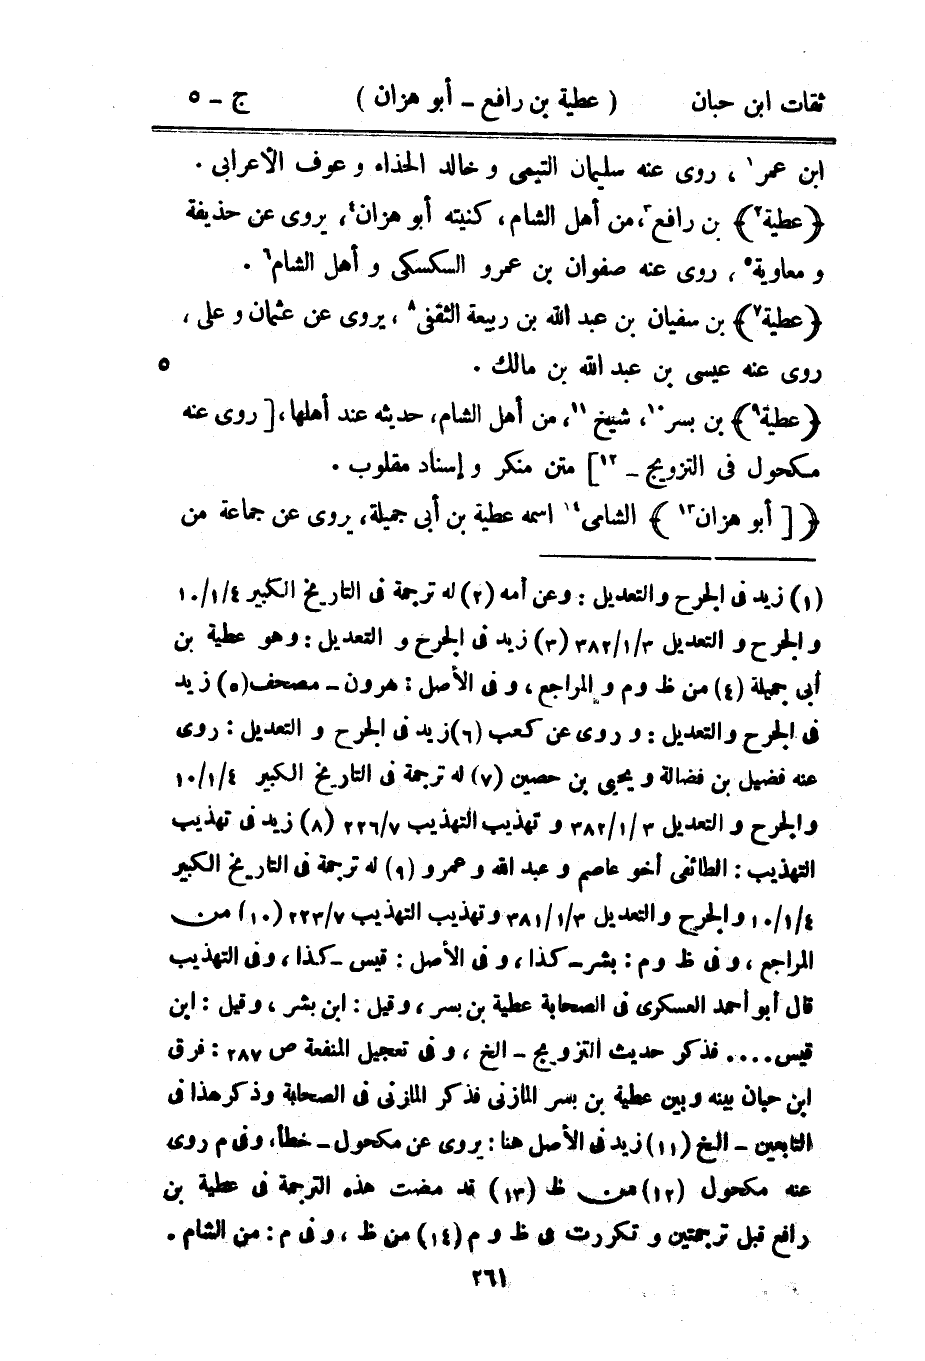 ثقات ابن حبان ( عطية بن رافع - أبو هزان ) ج - ٥
ابن عمر١ ، روى عنه سليمان التيمى و خالد الحذاء و عوف الأعرابى .
﴿عطية٢﴾ بن رافع٣، من أهل الشام، كنيته أبو هزان٤، يروى عن حذيفة
و معاوية٥ ، روى عنه صفوان بن عمرو السكسكى و أهل الشام٦ .
﴿عطية٧﴾ بن سفيان بن عبد الله بن ربيعة الثقفى٨ ، يروى عن عثمان و على ،
روى عنه عيسى بن عبد الله بن مالك . ٥
﴿عطية٩﴾ بن بسر١٠، شيخ١١، من أهل الشام، حديثه عند أهلها، [ روى عنه
مكحول فى التزويج - ١٢] متن منكر و إسناد مقلوب .
﴿[ أبو هزان١٣ ﴾ الشامى١٤ اسمه عطية بن أبى جميلة، يروى عن جماعة من
(١) زيد فى الجرح والتعديل : وعن أمه (٢) له ترجمة فى التاريخ الكبير ١٠/١/٤
والجرح و التعديل ٣٨٢/١/٣ (٣) زيد فى الجرح و التعديل : وهو عطية بن
أبى جميلة (٤) من ظ و م و المراجع ، و فى الأصل : هرون - مصحف (٥) زيد
فى الجرح والتعديل : و روى عن كعب (٦) زيد فى الجرح و التعديل : روى
عنه فضيل بن فضالة و يحيى بن حصين (٧) له ترجمة فى التاريخ الكبير ١٠/١/٤
والجرح و التعديل ٣٨٢/١/٣ و تهذيب التهذيب ٢٢٦/٧ (٨) زيد فى تهذيب
التهذيب : الطائفى أخو عاصم و عبد الله و عمرو (٩) له ترجمة فى التاريخ الكبير
١٠/١/٤ والجرح والتعديل ٣٨١/١/٣ و تهذيب التهذيب ٢٢٣/٧ (١٠) من
المراجع ، و فى ظ و م : بشر - كذا ، و فى الأصل : قيس - كذا ، و فى التهذيب
قال أبو أحمد العسكرى فى الصحابة عطية بن بسر ، وقيل : ابن بشر ، وقيل : ابن
قيس .... فذكر حديث التزويج - الخ ، و فى تعجيل المنفعة ص ٢٨٧ : فرق
ابن حبان بينه وبين عطية بن بسر المازنى فذكر المازنى فى الصحابة وذكر هذا فى
التابعين - الخ (١١) زيد فى الأصل هنا : يروى عن مكحول - خطأ، وفى م روى
عنه مكحول (١٢) من ظ (١٣) قد مضت هذه الترجمة فى عطية بن
رافع قبل ترجمتين و تكررت فى ظ و م (١٤) من ظ ، و فى م : من الشام .
٢٦١